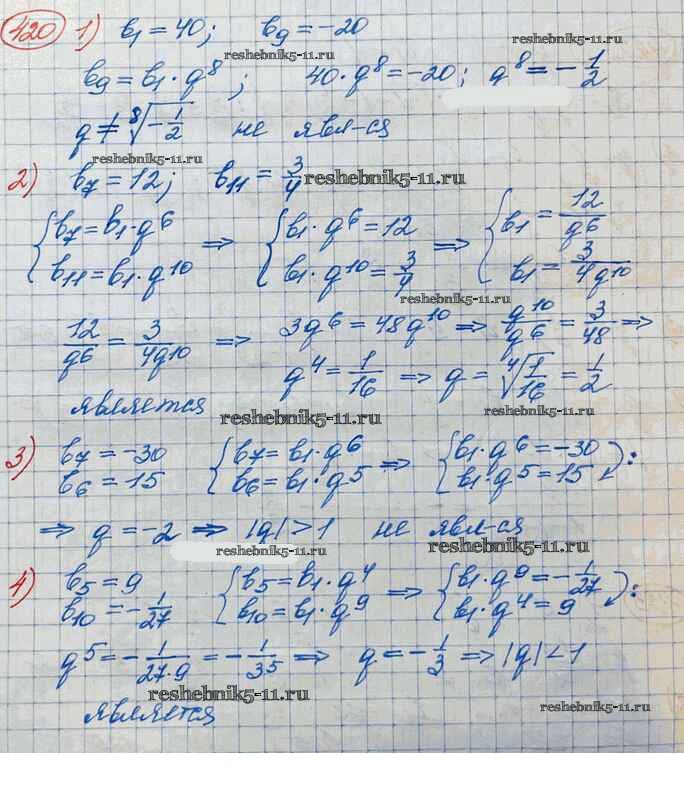 420 1) b₁ = 40; b₉ = -20
reshebnik5-11.ru
b₉ = b₁ · q⁸; 40 · q⁸ = -20; q⁸ = -1/2
reshebnik5-11.ru
q ≠ ⁸√(-1/2) не явл-ся
reshebnik5-11.ru
2) b₇ = 12; b₁₁ = 3/4
reshebnik5-11.ru
{ b₇ = b₁ · q⁶ ⇒ { b₁ · q⁶ = 12 ⇒ { b₁ = 12/q⁶
b₁₁ = b₁ · q¹⁰ b₁ · q¹⁰ = 3/4 b₁ = 3/4q¹⁰
reshebnik5-11.ru
12/q⁶ = 3/4q¹⁰ ⇒ 3q⁶ = 48q¹⁰ ⇒ q¹⁰/q⁶ = 3/48 ⇒
q⁴ = 1/16 ⇒ q = ⁴√(1/16) = 1/2
является
reshebnik5-11.ru
reshebnik5-11.ru
3) b₇ = -30 { b₇ = b₁ · q⁶ ⇒ { b₁ · q⁶ = -30
b₆ = 15 b₆ = b₁ · q⁵ b₁ · q⁵ = 15 :
⇒ q = -2 ⇒ |q| > 1 не явл-ся
reshebnik5-11.ru
reshebnik5-11.ru
4) b₅ = 9 { b₅ = b₁ · q⁴ ⇒ { b₁ · q⁹ = -1/27
b₁₀ = -1/27 b₁₀ = b₁ · q⁹ b₁ · q⁴ = 9 :
q⁵ = -1/27·9 = -1/3⁵ ⇒ q = -1/3 ⇒ |q| < 1
reshebnik5-11.ru
является
reshebnik5-11.ru